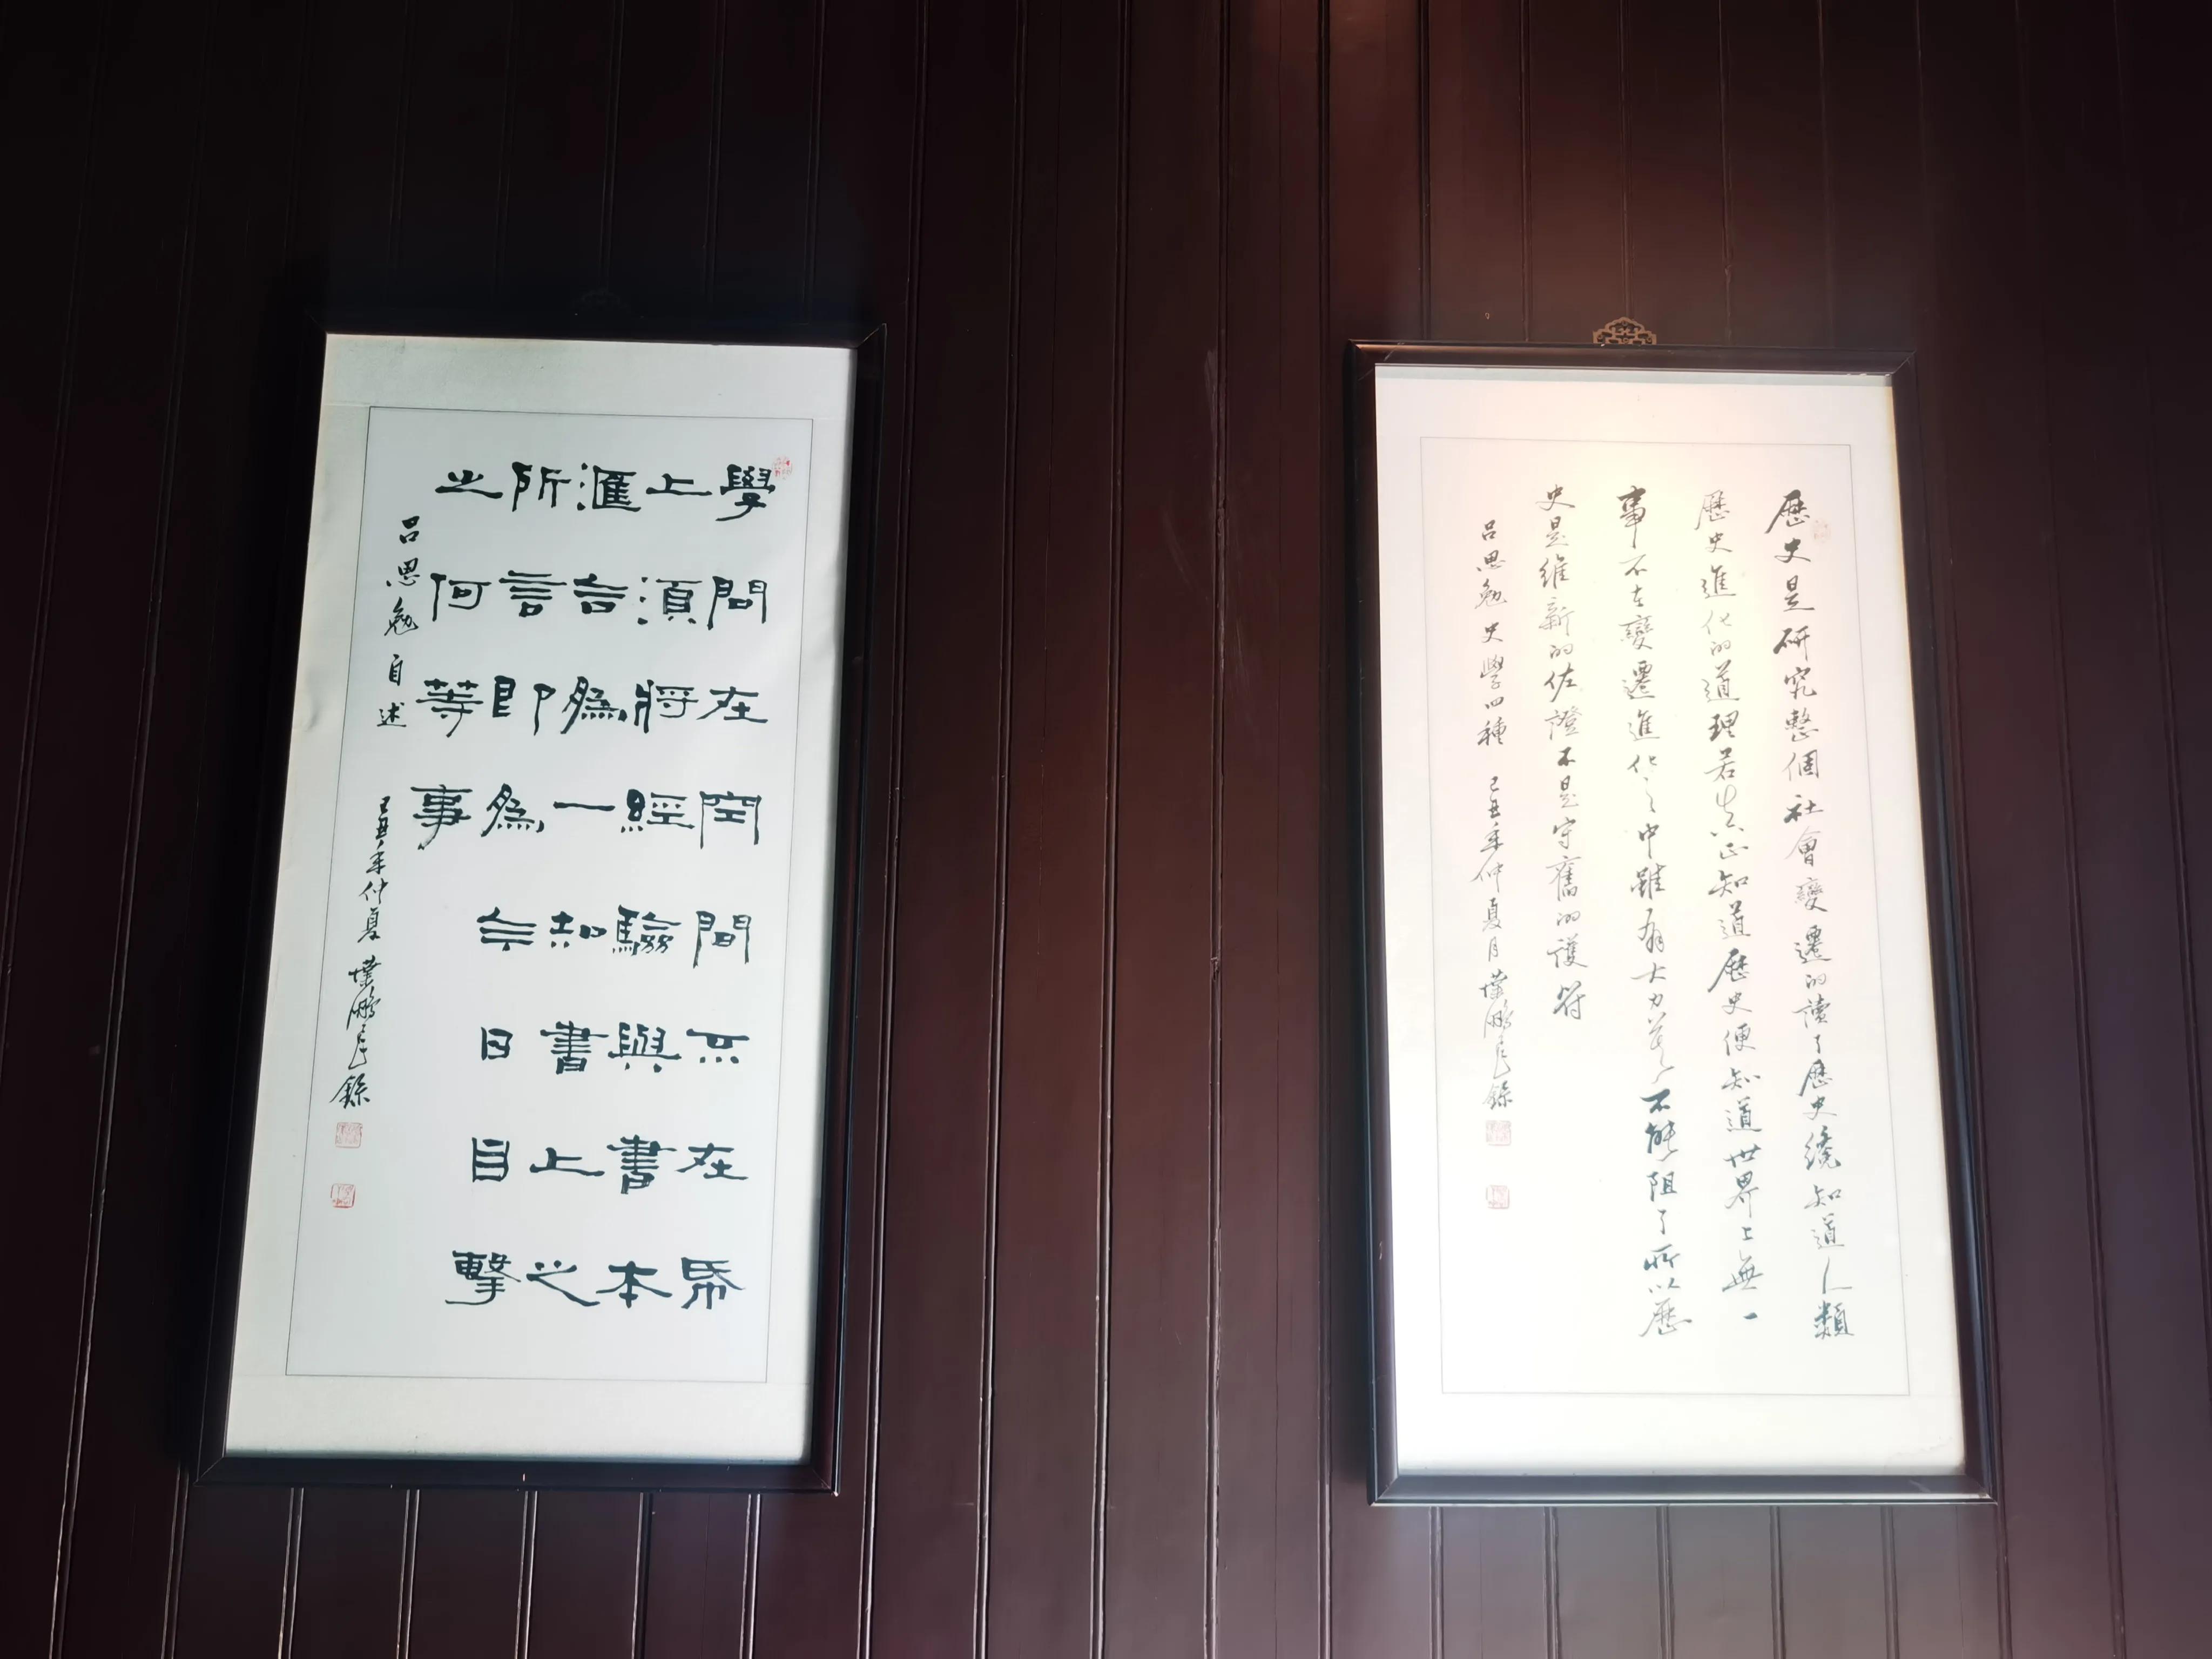 學問在空間不在帋
上須將經驗與書本
滙合爲一知書上之
所言即爲今日目擊
之何等事
吕思勉自述 己丑年仲夏 錄
歷史是研究整個社會變遷的讀了歷史纔知道人類
歷史進化的道理若真正知道歷史便知道世界上無一
事不在變遷進化之中雖有大力不能阻了所以歷
史是維新的佐證不是守舊的護符
吕思勉史學四種 己丑年仲夏月 錄